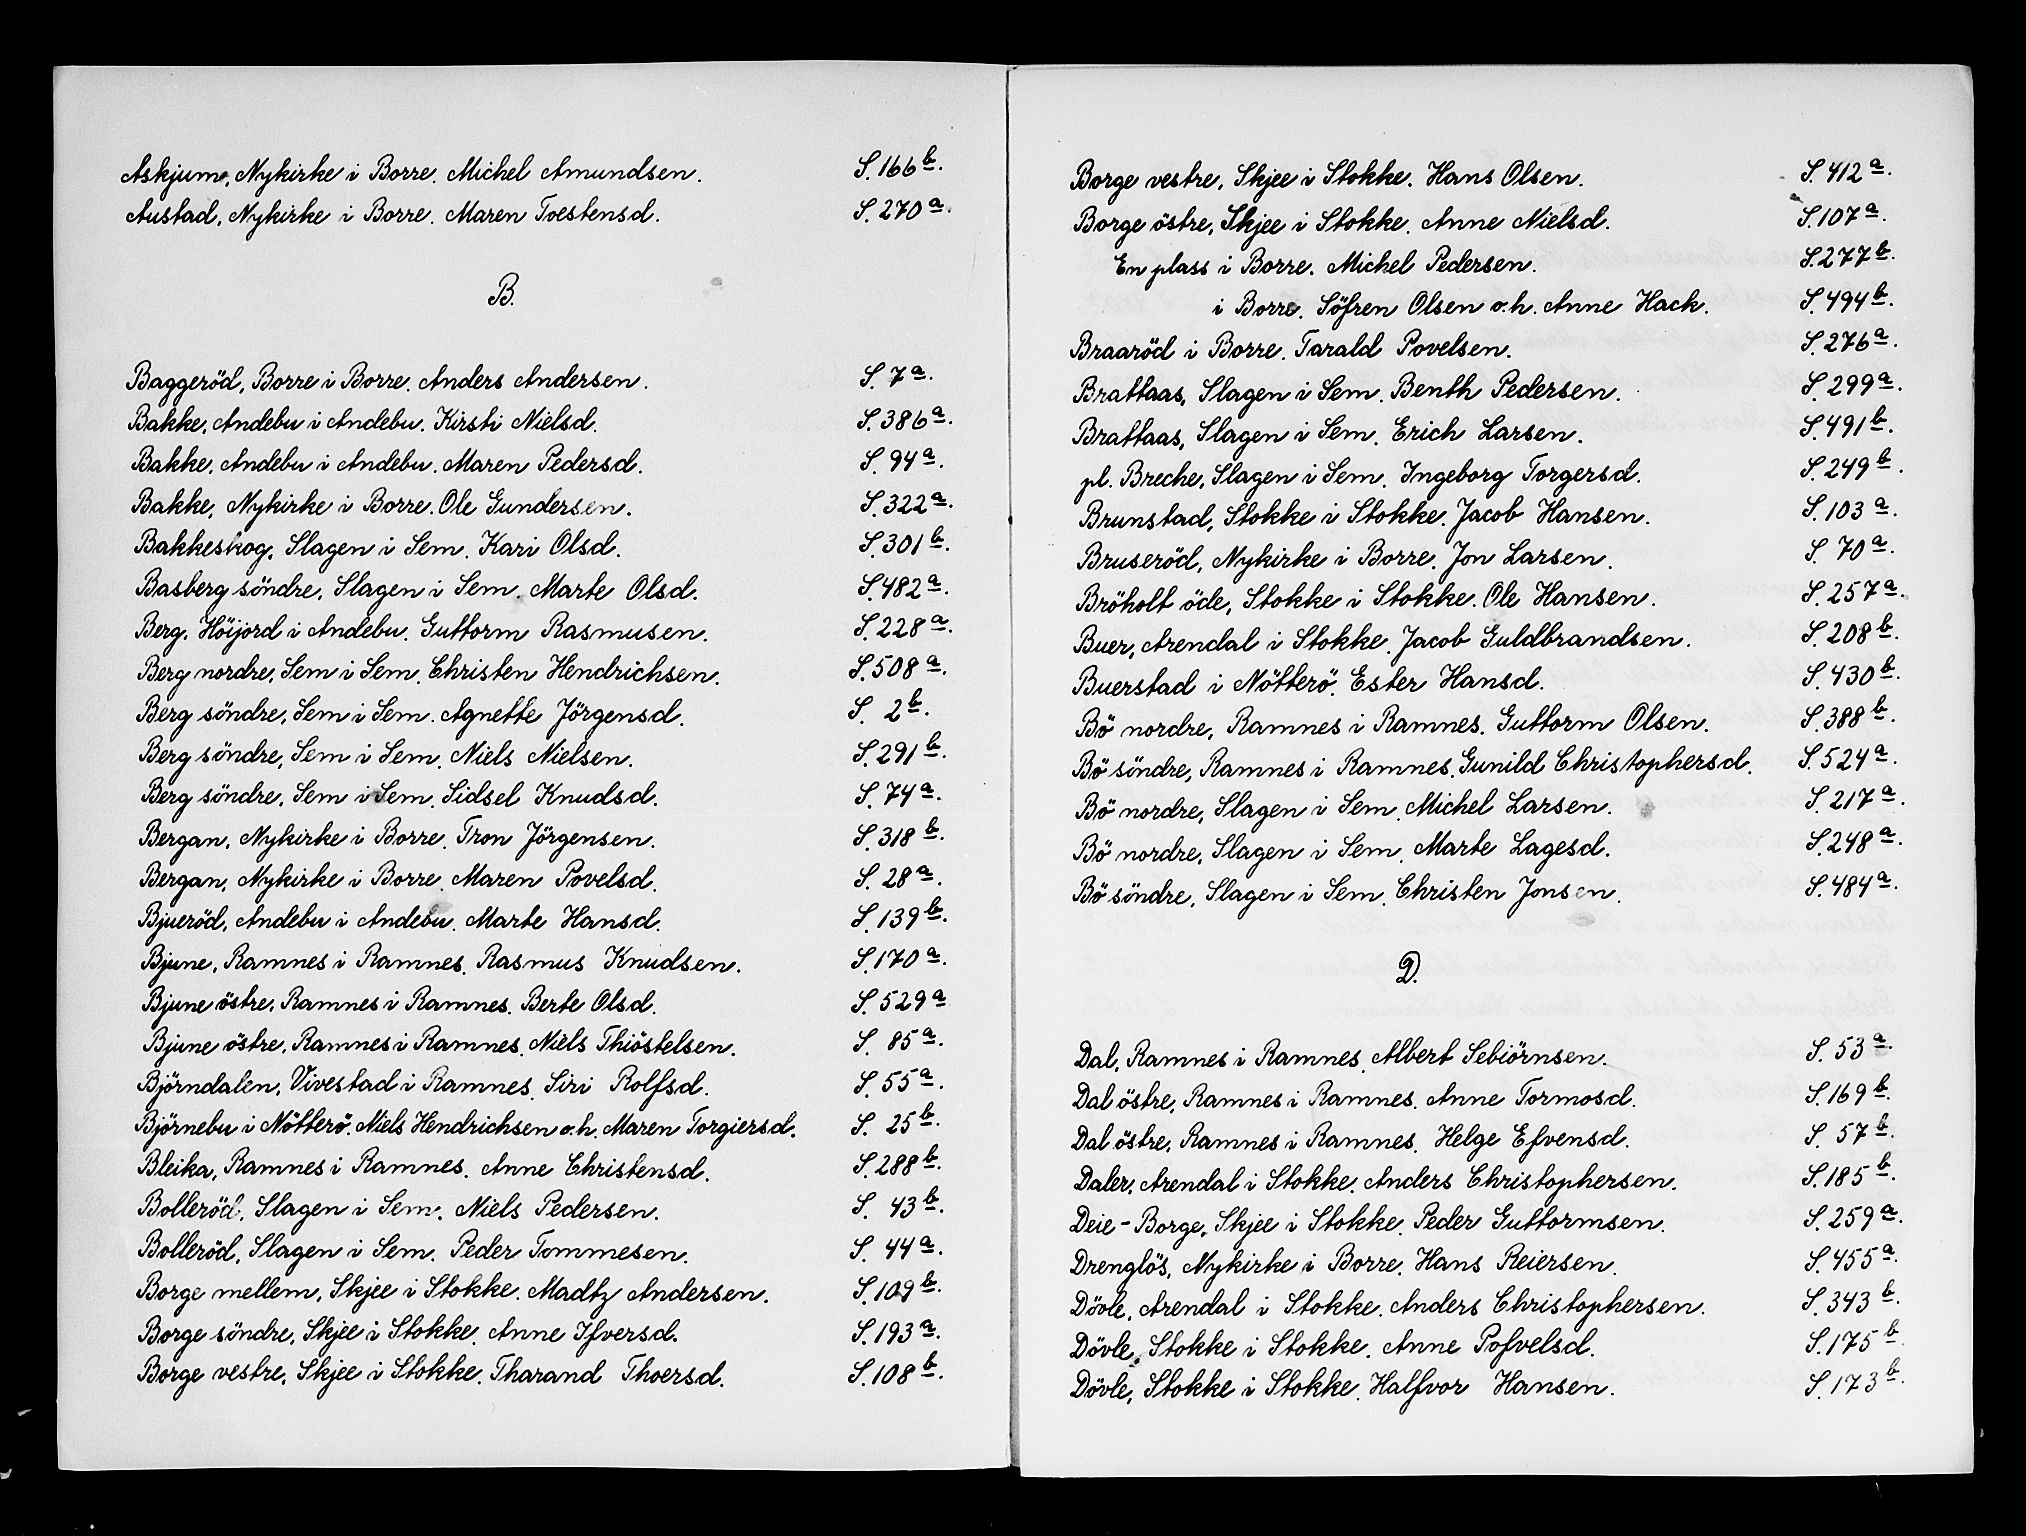 Askjum, Nykirke i Borre. Michel Amundsen. S. 166 b.
Austad, Nykirke i Borre. Maren Toestensd. S. 270 a.
B.
Baggeröd, Borre i Borre. Anders Andersen. S. 7 a.
Bakke, Andebu i Andebu. Kirsti Nielsd. S. 386 a.
Bakke, Andebu i Andebu. Maren Pedersd. S. 94 a.
Bakke, Nykirke i Borre. Ole Gundersen. S. 322 a.
Bakkeskog, Slagen i Sem. Kari Olsd. S. 301 b.
Basberg söndre, Slagen i Sem. Marte Olsd. S. 482 a.
Berg, Höijord i Andebu. Guttorm Rasmusen. S. 228 a.
Berg nordre, Sem i Sem. Christen Hendrichsen. S. 508 a.
Berg söndre, Sem i Sem. Agnette Jörgensd. S. 2 b.
Berg söndre, Sem i Sem. Niels Nielsen. S. 291 b.
Berg söndre, Sem i Sem. Sidsel Knudsd. S. 74 a.
Bergan, Nykirke i Borre. Tron Jörgensen. S. 318 b.
Bergan, Nykirke i Borre. Maren Povelsd. S. 28 a.
Bjueröd, Andebu i Andebu. Marte Hansd. S. 139 b.
Bjune, Ramnes i Ramnes. Rasmus Knudsen. S. 170 a.
Bjune östre, Ramnes i Ramnes. Berte Olsd. S. 529 a
Bjune östre, Ramnes i Ramnes. Niels Thiöstelsen. S. 85 a.
Björndalen, Vivestad i Ramnes. Siri Rolfsd. S. 55 a.
Björnebu i Nötterö. Niels Hendrichsen o.h. Maren Torgiersd. S. 25 b.
Bleika, Ramnes i Ramnes. Anne Christensd. S. 288 b.
Bolleröd, Slagen i Sem. Niels Pedersen. S. 43 b.
Bolleröd, Slagen i Sem. Peder Tommesen. S. 44 a.
Borge mellem, Skjee i Stokke. Madtz Andersen. S. 109 b.
Borge söndre, Skjee i Stokke. Anne Ifversd. S. 193 a.
Borge vestre, Skjee i Stokke. Tharand Thoersd. S. 108 b.
Borge vestre, Skjee i Stokke. Hans Olsen. S. 412 a.
Borge östre, Skjee i Stokke. Anne Nielsd. S. 107 a.
En plass i Borre. Michel Pedersen. S. 277 b.
i Borre. Söfren Olsen o.h. Anne Hack. S. 494 b.
Braaröd i Borre. Tarald Povelsen. S. 276 a.
Brattaas, Slagen i Sem. Benth Pedersen. S. 299 a.
Brattaas, Slagen i Sem. Erich Larsen. S. 491 b.
pl. Breche, Slagen i Sem. Ingeborg Torgersd. S. 249 b.
Brunstad, Stokke i Stokke. Jacob Hansen. S. 103 a.
Bruseröd, Nykirke i Borre. Jon Larsen. S. 70 a.
Bröholt öde, Stokke i Stokke. Ole Hansen. S. 257 a.
Buer, Arendal i Stokke. Jacob Guldbrandsen. S. 208 b.
Buerstad i Nötterö. Ester Hansd. S. 430 b.
Bö nordre, Ramnes i Ramnes. Guttorm Olsen. S. 388 b.
Bö söndre, Ramnes i Ramnes. Gunild Christophersd. S. 524 a.
Bö nordre, Slagen i Sem. Michel Larsen. S. 217 a.
Bö nordre, Slagen i Sem. Marte Lagesd. S. 248 a.
Bö söndre, Slagen i Sem. Christen Jonsen. S. 484 a.
D.
Dal, Ramnes i Ramnes. Albert Sebiörnsen. S. 53 a.
Dal östre, Ramnes i Ramnes. Anne Tormosd. S. 169 b.
Dal östre, Ramnes i Ramnes. Helge Efvensd. S. 57 b.
Daler, Arendal i Stokke. Anders Christophersen. S. 185 b.
Deie-Borge, Skjee i Stokke. Peder Guttormsen. S. 259 a.
Drenglös, Nykirke i Borre. Hans Reiersen. S. 455 a.
Dövle, Arendal i Stokke. Anders Christophersen. S. 343 b.
Dövle, Stokke i Stokke. Anne Pofvelsd. S. 175 b.
Dövle, Stokke i Stokke. Halfvor Hansen. S. 173 b.